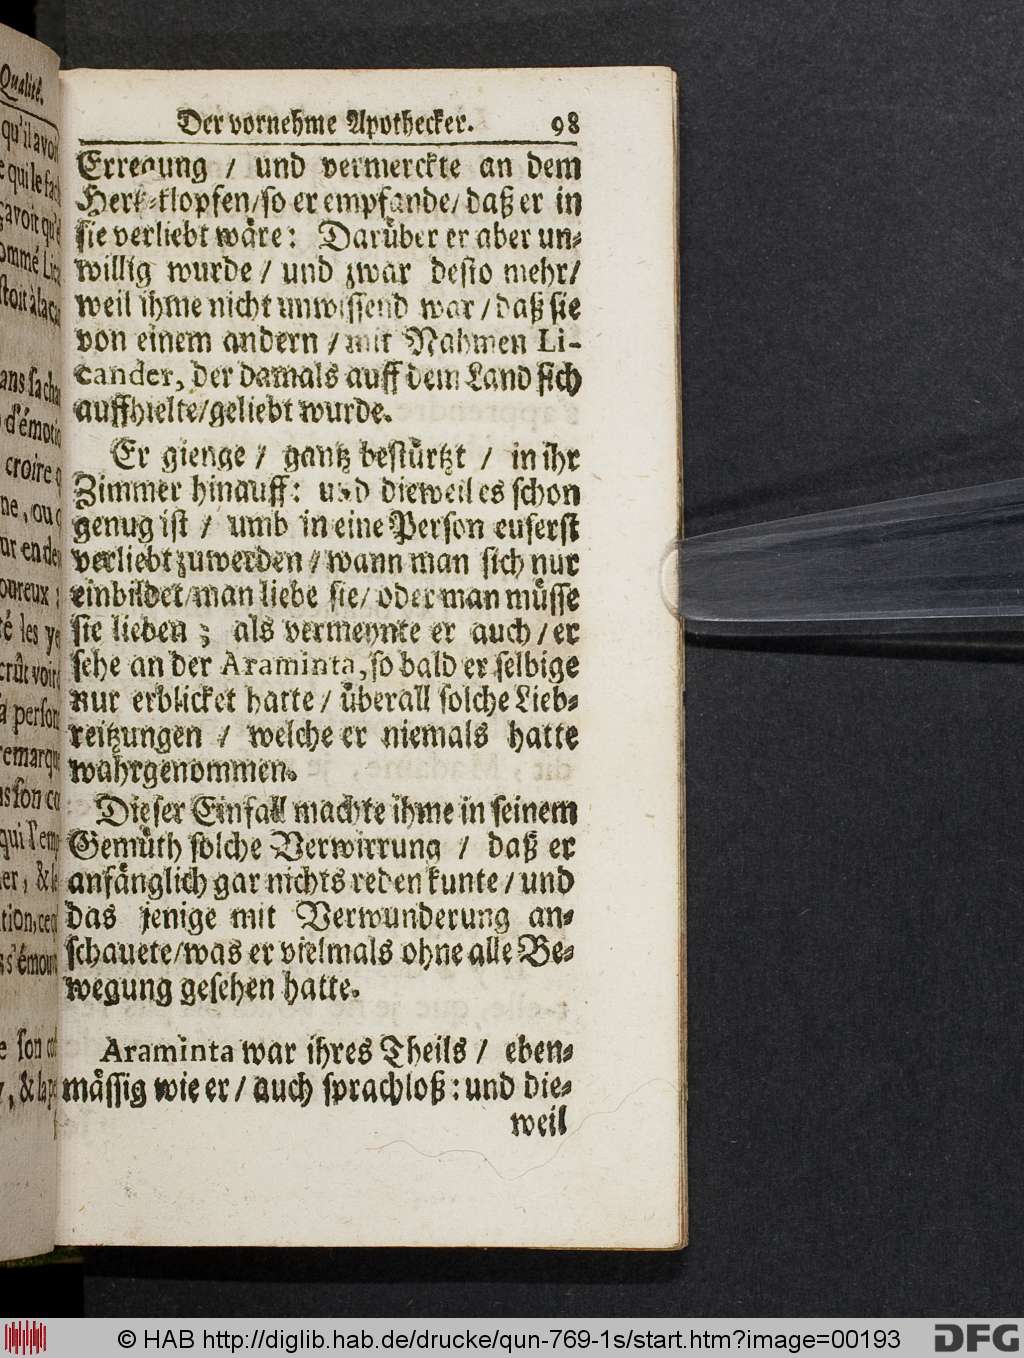 Qualité.
qu'il avoit
Der vornehme Apothecker. 98
Erregung / und vermerckte an dem
Hertz-klopfen/so er empfande/ daß er in
sie verliebt wäre: Darüber er aber un-
willig wurde / und zwar desto mehr/
weil ihme nicht unwissend war / daß sie
von einem andern / mit Nahmen Li-
cander, der damals auff dem Land sich
auffhielte/geliebt wurde.
Er gienge / gantz bestürtzt / in ihr
Zimmer hinauff: und dieweil es schon
genug ist / umb in eine Person euserst
verliebt zuwerden / wann man sich nur
einbildet/man liebe sie/ oder man müsse
sie lieben; als vermeynte er auch / er
sehe an der Araminta, so bald er selbige
nur erblicket hatte / überall solche Lieb-
reitzungen / welche er niemals hatte
wahrgenommen.
Dieser Einfall machte ihme in seinem
Gemüth solche Verwirrung / daß er
anfänglich gar nichts reden kunte / und
das jenige mit Verwunderung an-
schauete/was er vielmals ohne alle Be-
wegung gesehen hatte.
Araminta war ihres Theils / eben-
mässig wie er / auch sprachloß: und die-
weil
© HAB http://diglib.hab.de/drucke/qun-769-1s/start.htm?image=00193
DFG